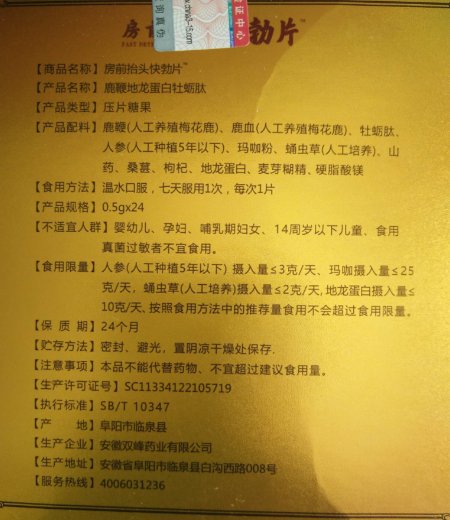 www.china3-15.com
询真伪
证中心
房前
勃片
【商品名称】房前抬头快勃片™
【产品名称】鹿鞭地龙蛋白牡蛎肽
【产品类型】压片糖果
【产品配料】鹿鞭(人工养殖梅花鹿)、鹿血(人工养殖梅花鹿)、牡蛎肽、
人参(人工种植5年以下)、玛咖粉、蛹虫草(人工培养)、山
药、桑葚、枸杞、地龙蛋白、麦芽糊精、硬脂酸镁
【食用方法】温水口服，七天服用1次，每次1片
【产品规格】0.5gx24
【不适宜人群】婴幼儿、孕妇、哺乳期妇女、14周岁以下儿童、食用
真菌过敏者不宜食用。
【食用限量】人参(人工种植5年以下) 摄入量≤3克/天、玛咖摄入量≤25
克/天，蛹虫草(人工培养)摄入量≤2克/天,地龙蛋白摄入量≤
10克/天、按照食用方法中的推荐量食用不会超过食用限量。
【保 质 期】24个月
【贮存方法】密封、避光，置阴凉干燥处保存.
【注意事项】本品不能代替药物、不宜超过建议食用量。
【生产许可证号】SC11334122105719
【执行标准】SB/T 10347
【产 地】阜阳市临泉县
【生产企业】安徽双峰药业有限公司
【生产地址】安徽省阜阳市临泉县白沟西路008号
【服务热线】4006031236